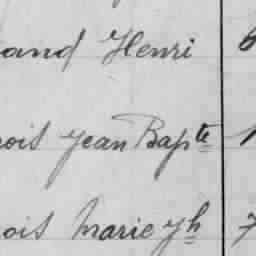 and Henri 6
ois Jean Bapte 1
ois Marie Jh 7